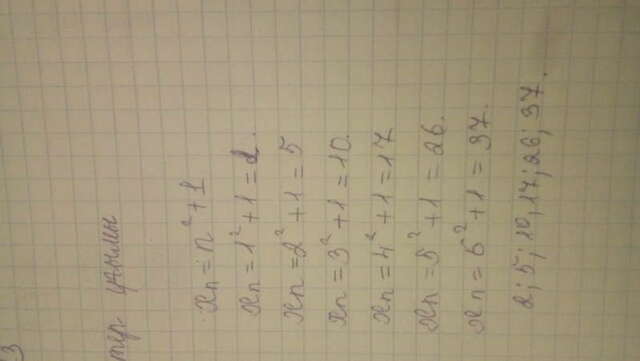 13
xn = n² + 1
xn = 1² + 1 = 2.
xn = 2² + 1 = 5
xn = 3² + 1 = 10.
xn = 4² + 1 = 17
xn = 5² + 1 = 26.
xn = 6² + 1 = 37.
2; 5; 10, 17; 26; 37.